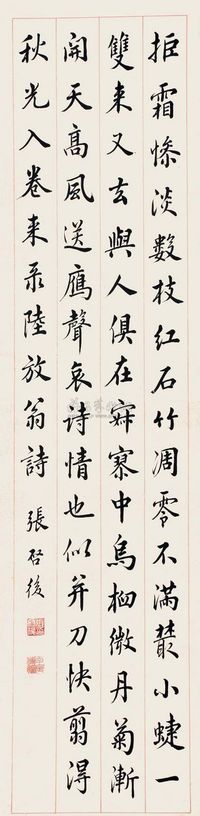 拒霜惨淡数枝红石竹凋零不满叢小蜨一
雙来又去與人俱在寂寥中烏桕微丹菊漸
開天高風送鴈聲哀诗情也似并刀快翦淂
秋光入卷来录陸放翁詩 張启後